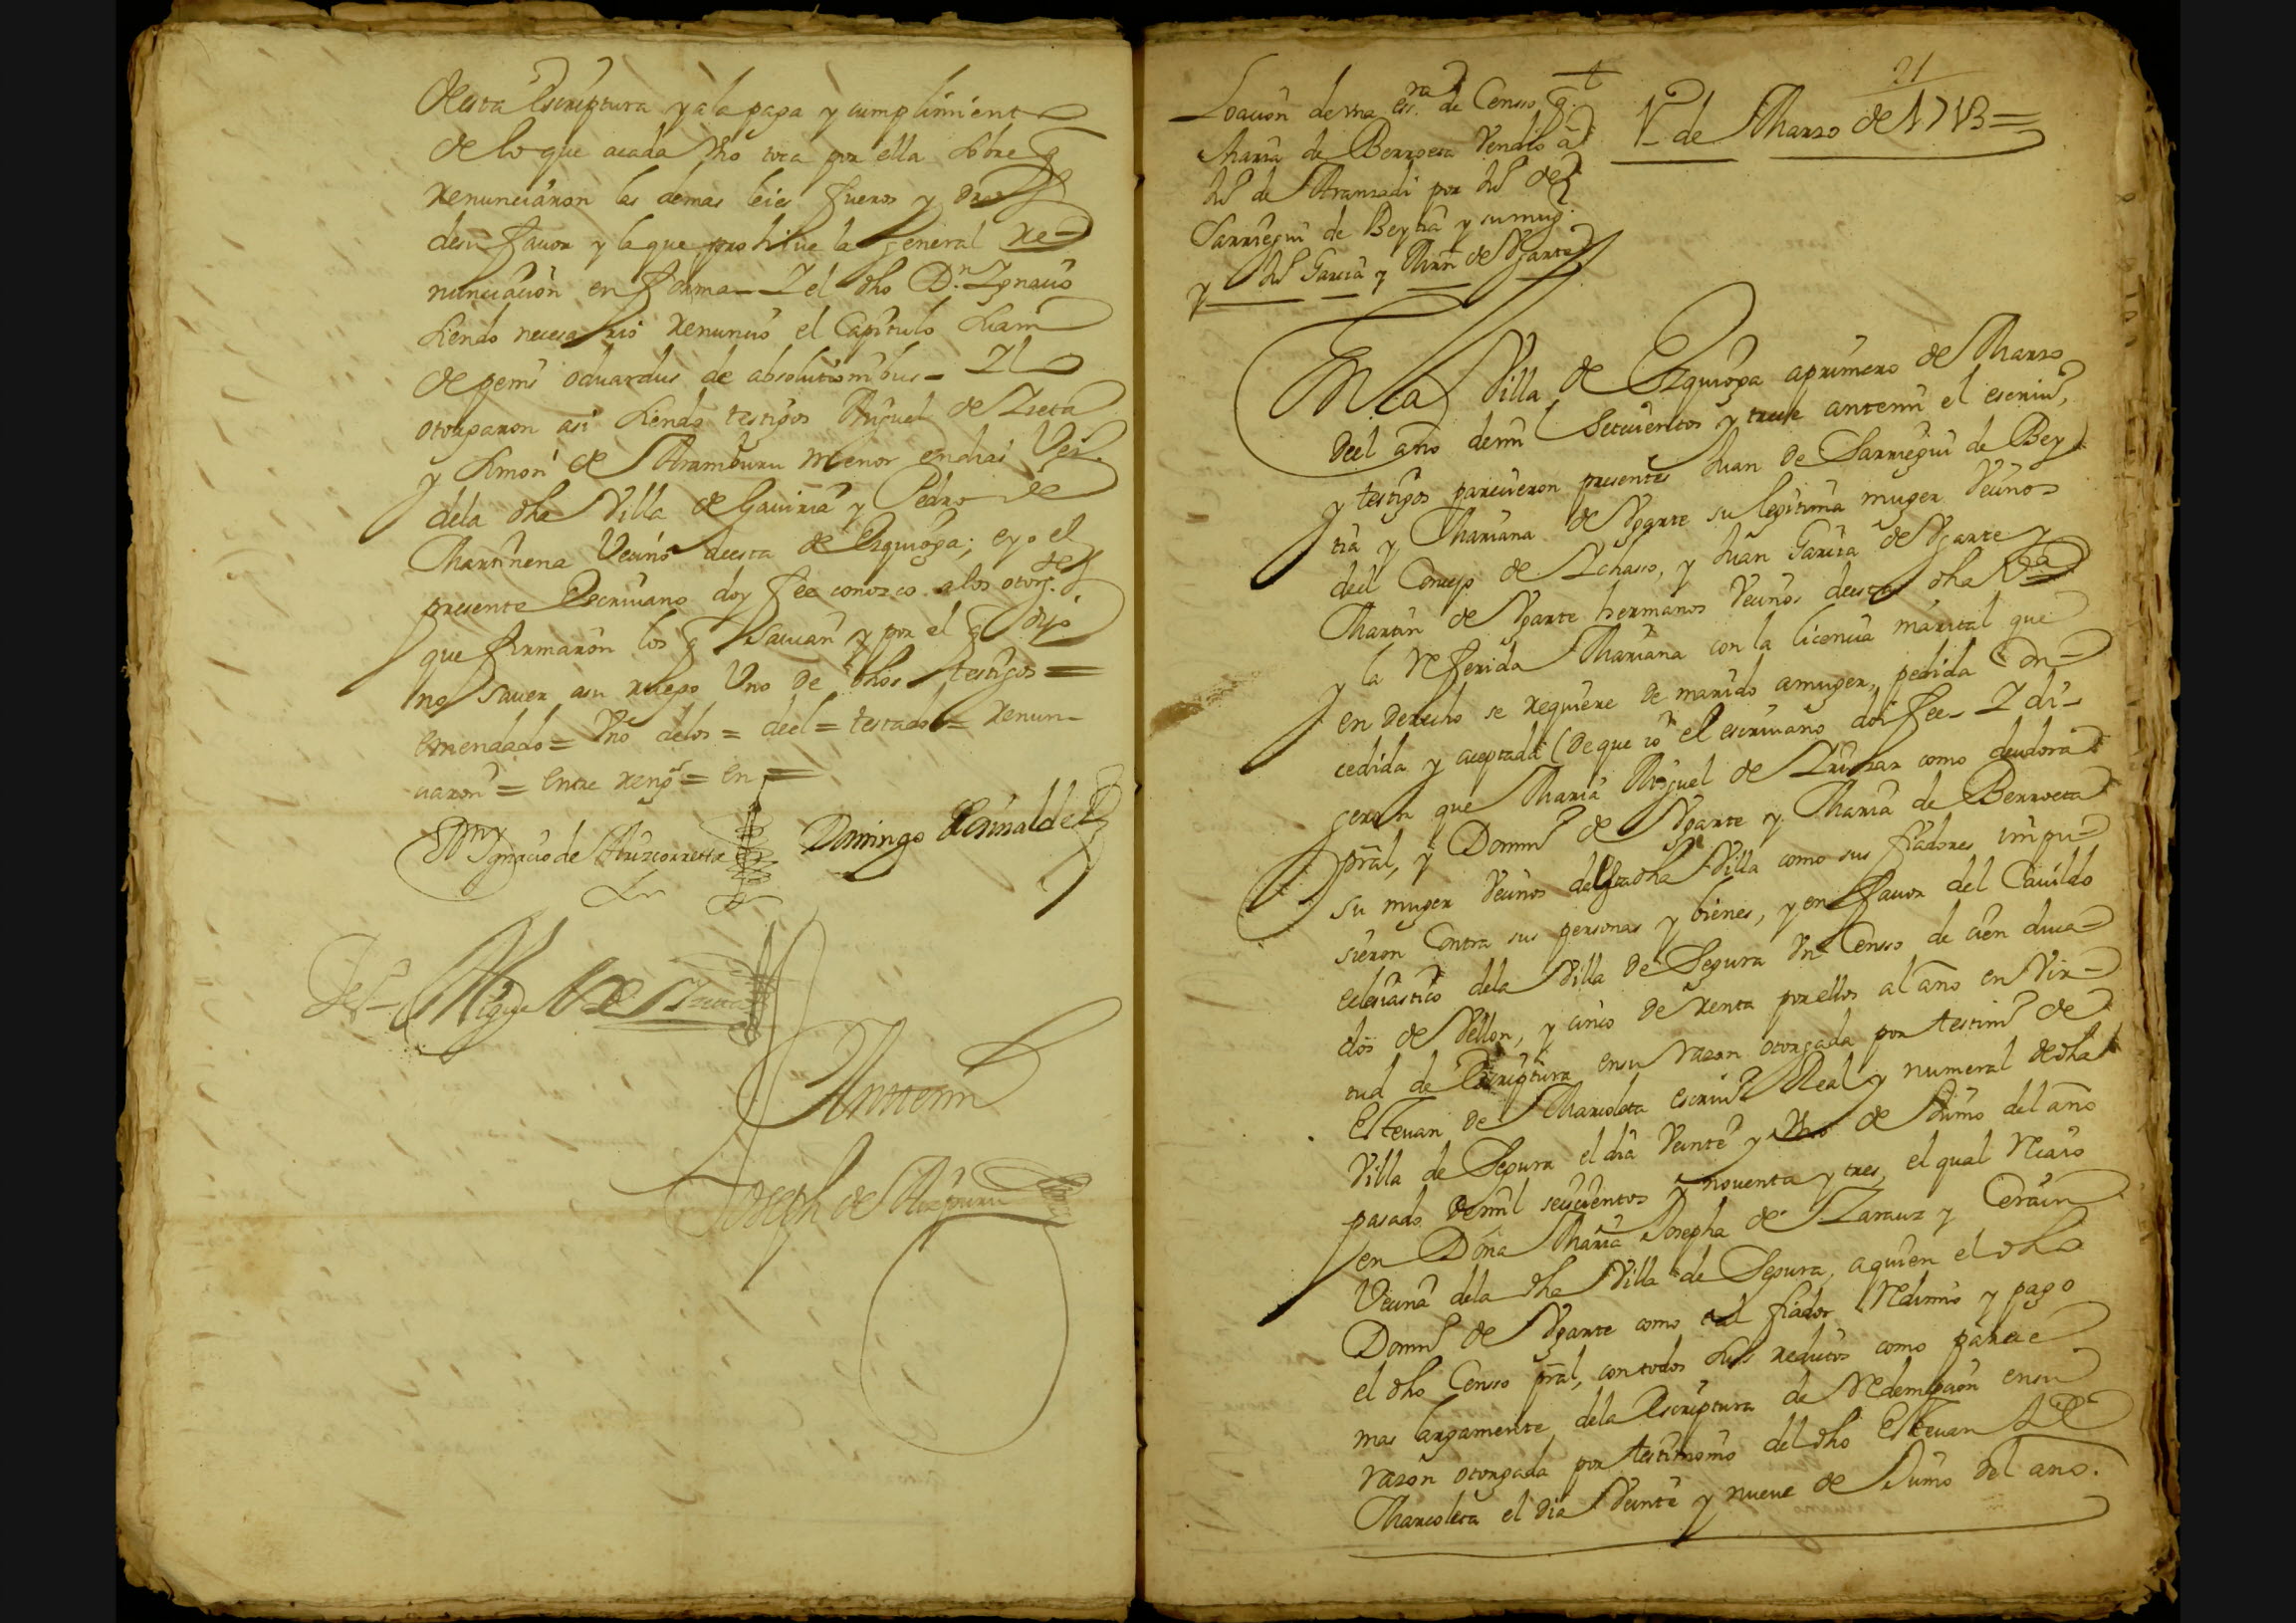 desta Escriptura y a la paga y cumplimiento
de lo que acada Vno toca por ella sobre q
renunciaron las demas leies fueros y dros
desu fauor y la que prohiue la general re-
nunciaciòn en forma - I el dho Dn. Ignacio
siendo necesario renuncio el Capitulo suam
de penis oduardus de absolutionibus - I lo
otorgaron asi siendo testigos Miguel de Izeta
y Simon de Aramburu menor en dias Vez.s
dela dha Villa de Gauiria y Pedro de
Martinena Vecino desta de Ezquioga; e yo el
presente Escriuano doy fee conozco alos otorg.tes
que firmaron los q sauian y por el q dijo
no sauer asu ruego Vno de dhos testigos =
emendado = Vno delos = deel = testado = renun-
ciaron = Entre rengs = en =
Dn Ignacio de Arizcorreta
Domingo
tsº Miguel de Izeta
Antemi
Joseph de Aizpuru
21
Loaciòn de vna essra. de Censo q.
Maria de Berroeta Vendiò à
Jun de Aranzadi por Jun de
Sarriegui de Beytia y su mug.r
y Jun Garcia y Mrn de Vgarte
1º de Marzo de 1713 =
En la Villa de Ezquioga aprimero de Marzo
deel año demil Setecientos y trece antemi el escriuº
y testigos parecieron presentes Juan de Sarriegui de Bey
tia y Mariana de Vgarte su legitima muger Vecinos
deel Concejo de Ichasso, y Juan Garcia de Vgarte y
Martin de Vgarte hermanos Vecinos deesta dha Va
y la referida Mariana con la licencia marital que
en derecho se requiere de marido amuger, pedida Con-
cedida y aceptada (de que io el escriuano doi fee - I di-
geron que Maria Miguel de Irimar como deudora
pral, y Domin de Vgarte y Maria de Berroeta
su muger Vecinos de dha Villa como sus fiadores impu-
sieron Contra sus personas y bienes, y en fauor del Cauildo
eclesiastico dela Villa de Segura Vn Censo de cien duca-
dos de Vellon, y cinco de renta por ellos al año en Vir-
tud de Escriptura en su razon otorgada por testimº de
Esteuan de Marcoleta escriuº Real y numeral de dha
Villa de Segura el dia Veinte y Vno de Junio del año
pasado demil seiscientos y nouenta y tres, el qual recaio
en Doña Maria Josepha de Zarauz y Cerain
Vecina dela dha Villa de Segura, aquien el dho
Domin de Vgarte como tal fiador redimio y pago
el dho Censo pral, con todos sus reditos como parece
mas largamente dela Escriptura de redempcion en su
razon otorgada por testimonio del dho Esteuan de
Marcoleta el dia Veinte y nueue de Junio del ano.